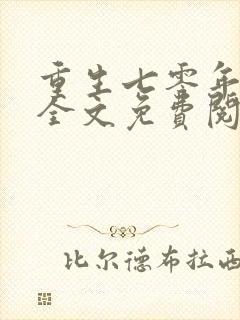 重生七零年
全文免費閱
比尔德布拉西